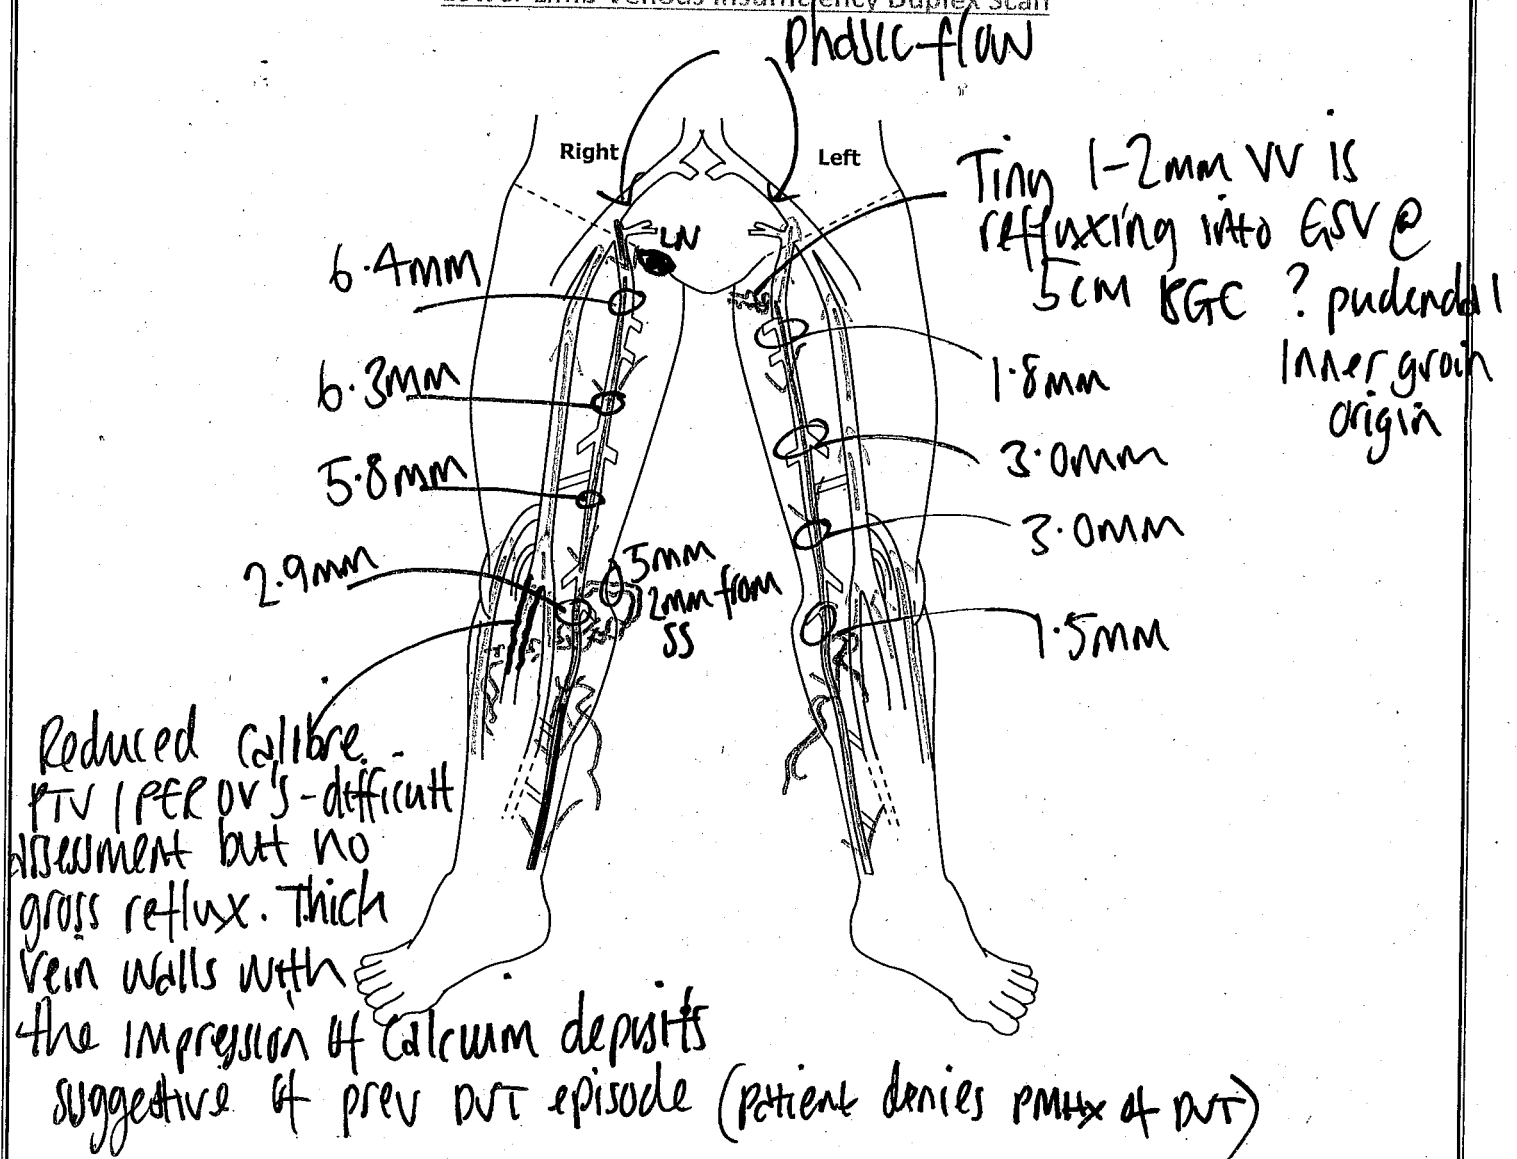 Lower Limb Venous Insufficiency Duplex Scan
Phasic flow
Right
Left
LN
Tiny 1-2mm VV is
refluxing into GSV @
5cm BGC ? pudendal
inner groin
origin
6.4mm
6.3mm
5.8mm
2.9mm
5mm
2mm from
SS
1.8mm
3.0mm
3.0mm
1.5mm
Reduced calibre
PTV / PER DV'S - difficult
assessment but no
gross reflux. Thick
vein walls with
the impression of calcium deposits
suggestive of prev DVT episode (patient denies PMHx of DVT)